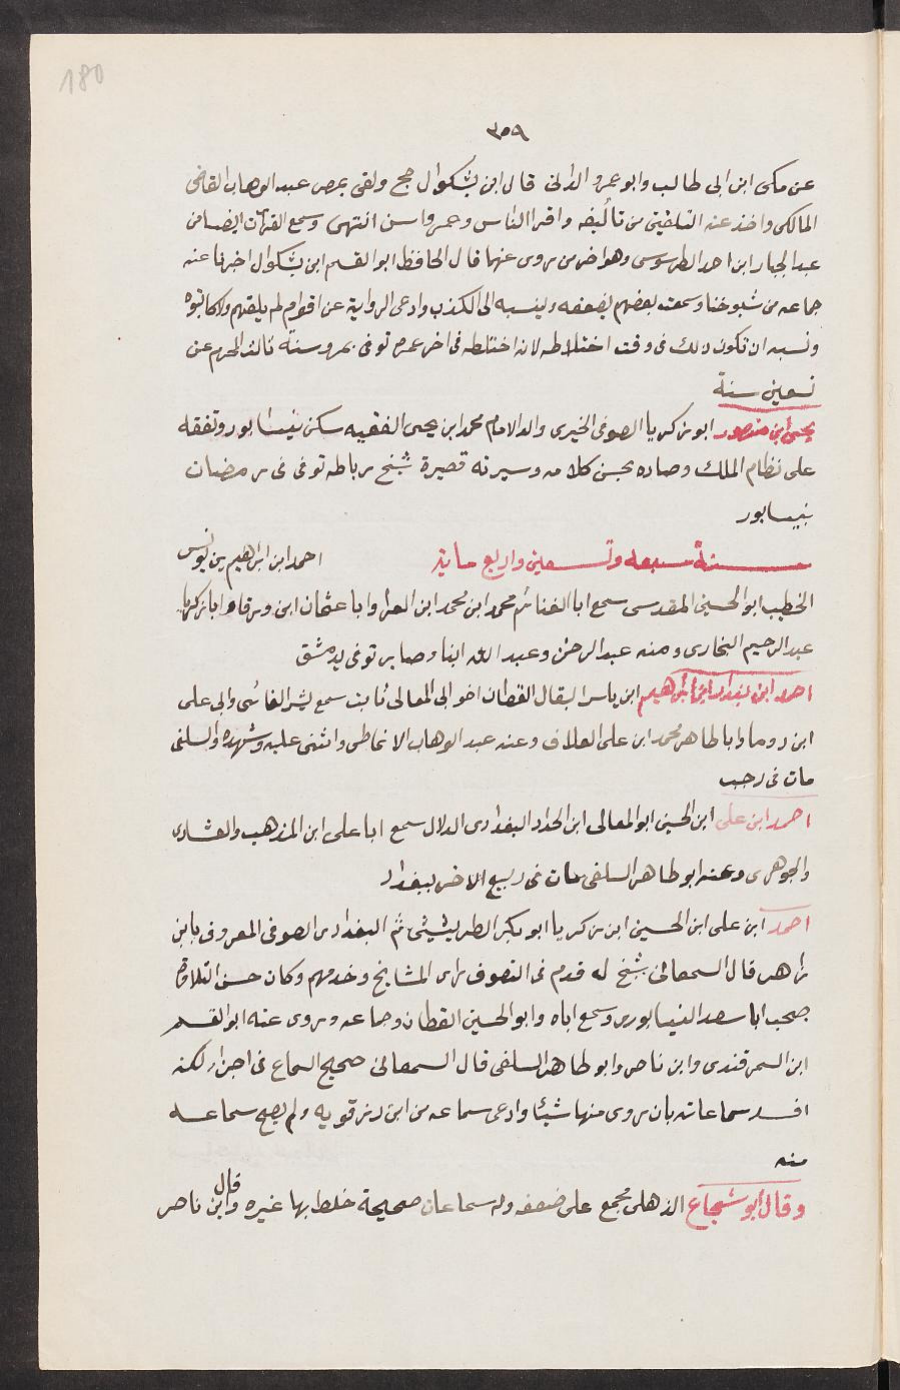 180
٣٥٩
عن مكى ابن ابى طالب وابو عمرو الدانى قال ابن بشكوال حج ولقى بمصر عبد الوهاب القاضى
المالكى واخذ عنه التلقين من تأليفه واقرا الناس وعمر واسن انتهى وسمع القرات ايضا من
عبد الجبار ابن احمد الطرسوسى وهو اخر من روى عنها قال الحافظ ابو القسم ابن بشكوال اخبرنا عنه
جماعه من شيوخنا وسمعت بعضهم يضعفه وينسبه الى الكذب وادعى الرواية عن اقوام لم يلقهم ولا كاتبوه
ونسبه ان تكون ذلك فى وقت اختلاطه لانه اختلطه فى اخر عمره توفى بمروسنة ثالث المحرم عن
تسعين سنة
يحيى ابن منصور ابو زكريا الصوفى الخيرى والد الامام محمد ابن يحيى الفقيه سكن نيسابور وتفقه
على نظام الملك وصاده بحسن كلامه وسيرته قصيرة شيخ رباطه توفى فى رمضان
بنيسابور
سنة سبعه وتسعين واربع ماية احمد ابن ابرهيم بن يونس
الخطيب ابو الحسين المقدسى سمع ابا الغنائم محمد ابن محمد ابن الفرا وابا عثمان ابن ورقا وابا زكريا
عبد الرحيم البخارى ومنه عبد الرحمن وعبد الله ابنا صابر توفى بدمشق
احمد ابن بندار ابن ابرهيم ابن باسر البقال القطان اخو ابى المعالى ثابت سمع بشر الفاسى وابى على
ابن دوما وابا طاهر محمد ابن على العلاف وعنه عبد الوهاب الانماطى واثنى عليه وشهده والسلفى
مات فى رجب
احمد ابن على ابن الحسين ابو المعالى ابن الحداد البغدادى الدلال سمع ابا على ابن المذهب والعشارى
والجوهرى وعنه ابو طاهر السلفى مات فى ربيع الاخر ببغداد
احمد ابن على ابن الحسين ابن زكريا ابو بكر الطريثيثى ثم البغدادى الصوفى المعروف بابن
زاهر قال السمعانى شيخ له قدم فى التصوف راى المشايخ وخدمهم وكان حسن التلاوة
صحب ابا سعد النيسابورى وسمع اباه وابو الحسين القطان وجماعه وروى عنه ابو القسم
ابن السمرقندى وابن ناصر وابو طاهر السلفى قال السمعانى صحيح السماع فى اجزاء لكنه
افسد سماعاته بان روى منها شيئا وادعى سماعه من ابن رزقويه ولم يصح سماعه
منه
وقال ابو شجاع الذهلى مجمع على ضعفه وله سماعات صحيحة خلط بها غيره وقال ابن ناصر